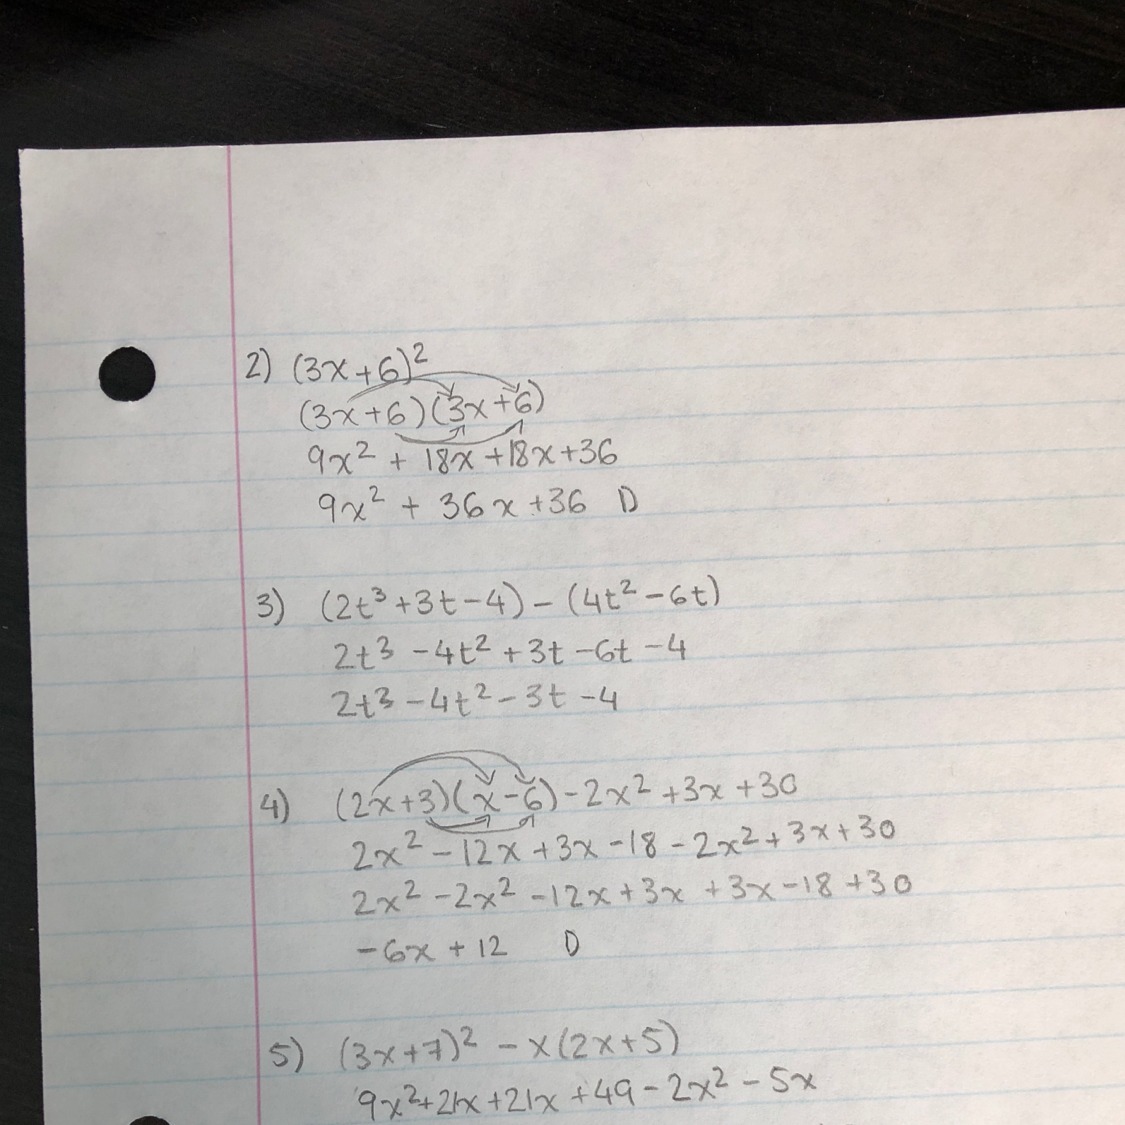 2) (3x+6)²
(3x+6)(3x+6)
9x² + 18x +18x+36
9x² + 36x +36 D
3) (2t³+3t-4) - (4t²-6t)
2t³ -4t² +3t -6t -4
2t³ -4t² -3t -4
4) (2x+3)(x-6) -2x² +3x +30
2x² -12x +3x -18 -2x² +3x+30
2x² -2x² -12x +3x +3x -18 +30
-6x + 12 D
5) (3x+7)² - x(2x+5)
9x²+21x +21x +49 -2x² -5x